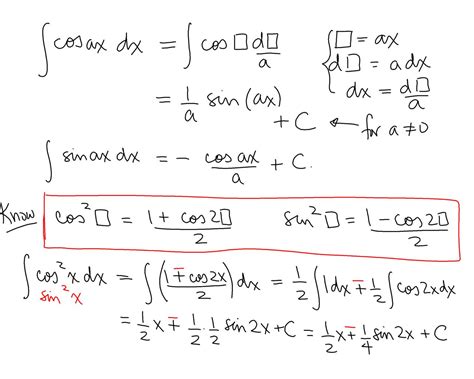 ∫cos ax dx = ∫cos □ d□/a { □ = ax
d□ = a dx
= 1/a sin (ax) dx = d□/a
+ C ← for a ≠ 0
∫sin ax dx = - cos ax/a + C.
Know cos² □ = 1 + cos 2□/2 sin² □ = 1 - cos 2□/2
∫cos² x dx = ∫(1 ∓ cos 2x/2) dx = 1/2 ∫1 dx ∓ 1/2 ∫cos 2x dx
sin² x
= 1/2 x ∓ 1/2 · 1/2 sin 2x + C = 1/2 x ∓ 1/4 sin 2x + C